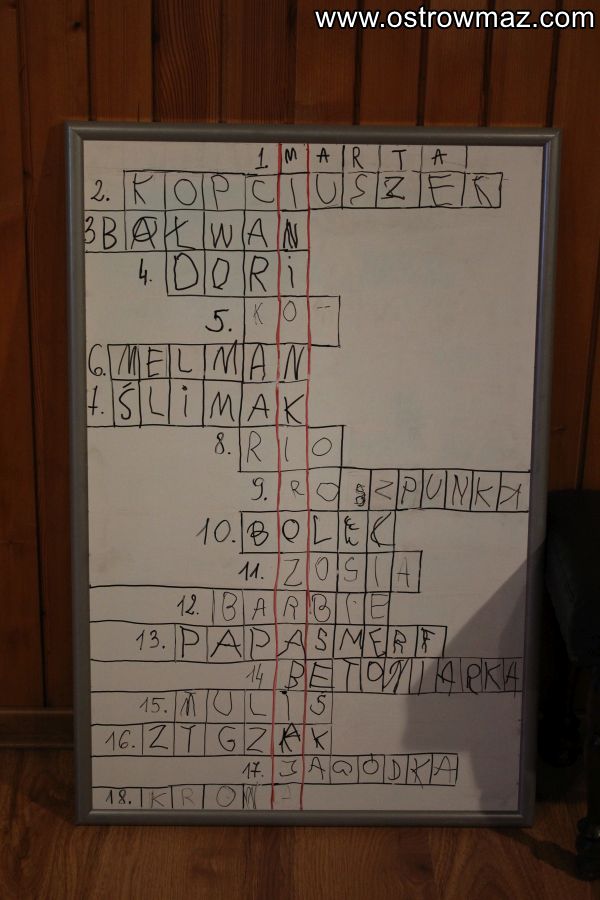 www.ostrowmaz.com
1 MARTA
2. KOPCIUSZEK
3 BAŁWAN
4. DORi
5. KOT
6. MELMAN
7. ŚLiMAK
8. RIO
9. ROSZPUNKA
10. BOLEK
11. ZOSIA
12. BARBIE
13. PAPASMERF
14 BETONIARKA
15. MULiS
16. ZYGZAK
17. JAGÓDKA
18. KRON